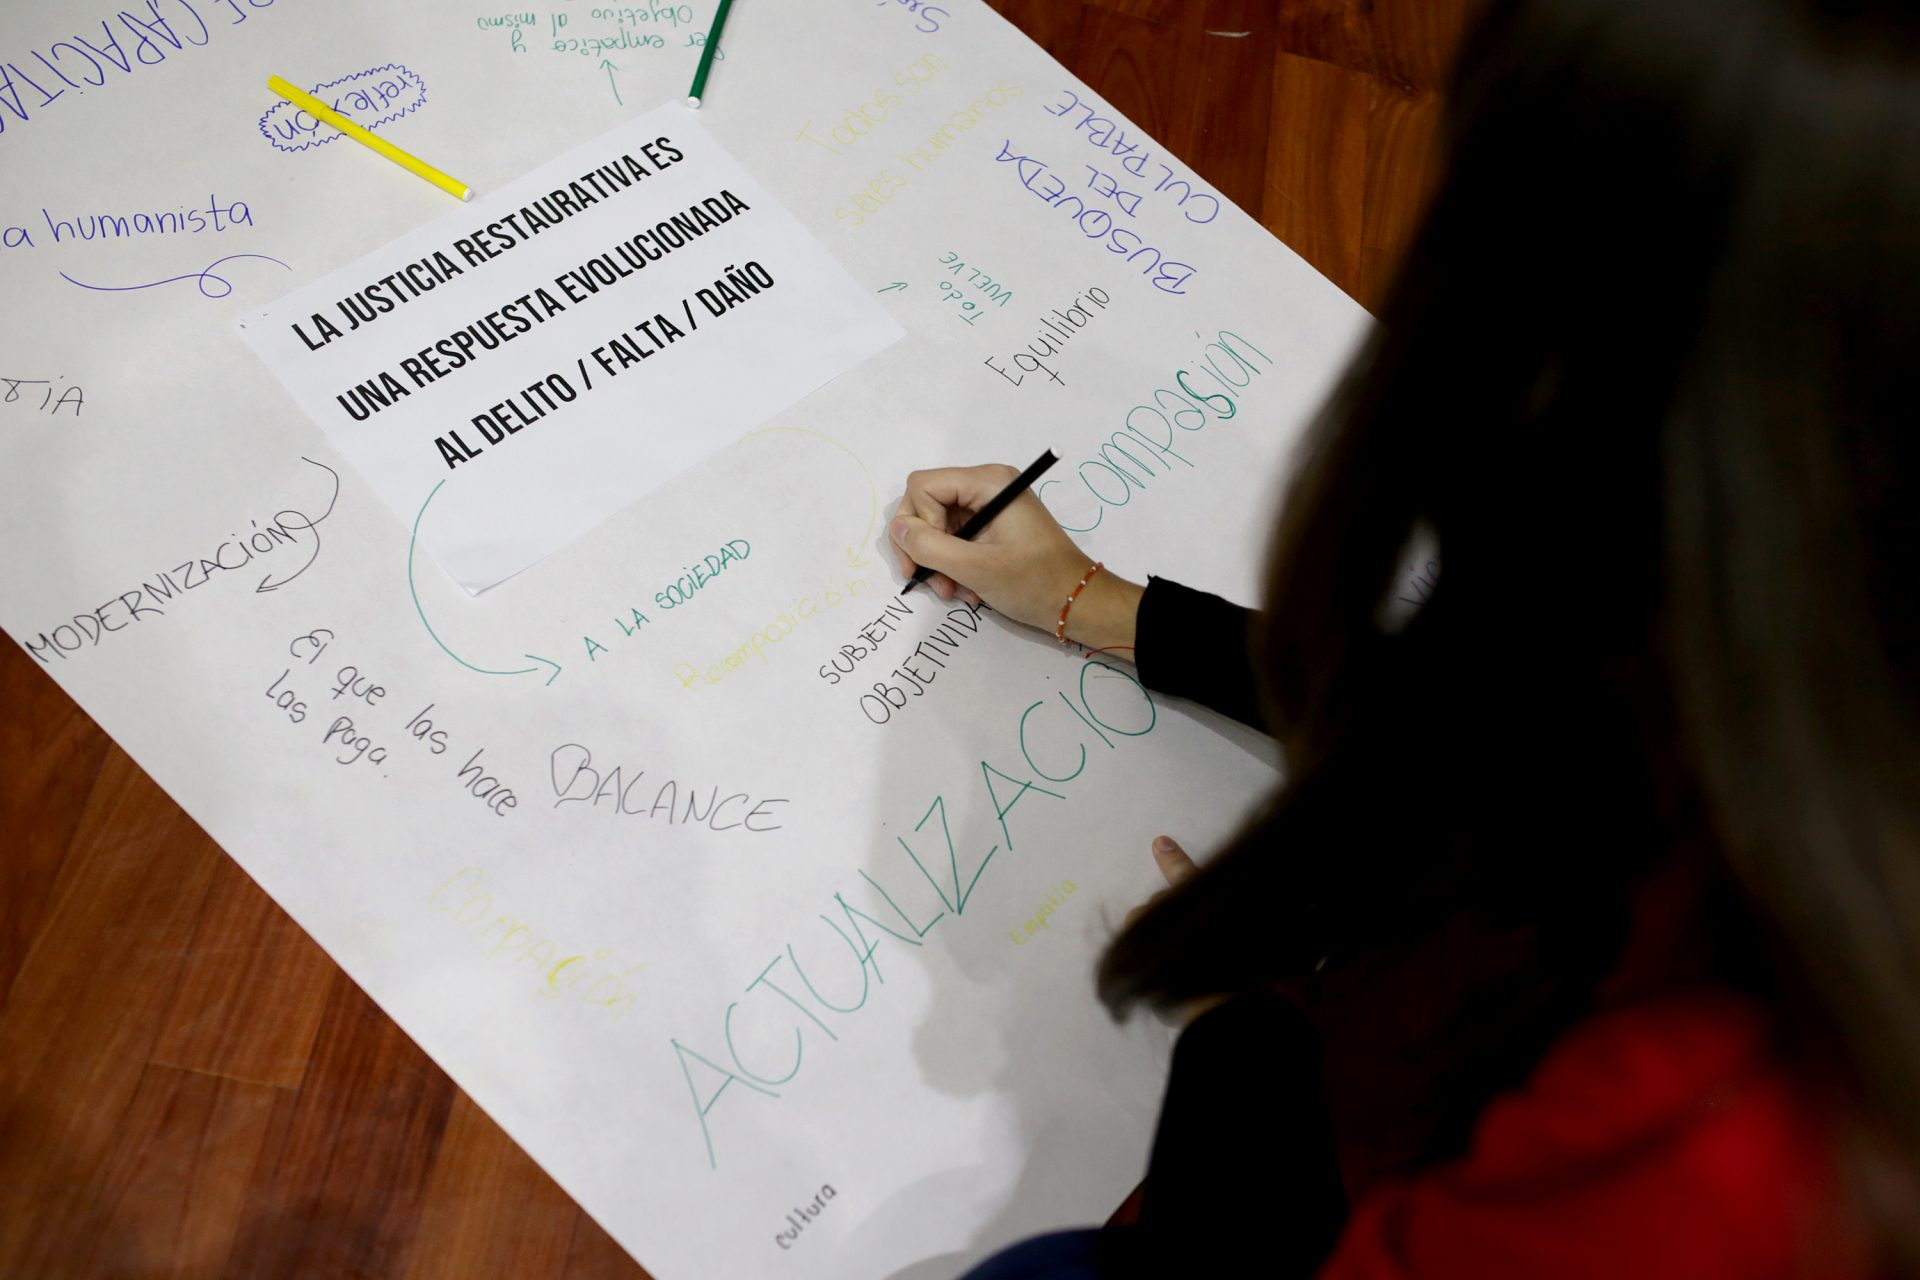 LA JUSTICIA RESTAURATIVA ES
UNA RESPUESTA EVOLUCIONADA
AL DELITO / FALTA / DAÑO
empatico y
Objetivo al mismo
reflexión
a humanista
Todos son
seres humanos
BUSQUEDA
DEL
CULPABLE
Todo
VUELVE
Equilibrio
Compasión
MODERNIZACIÓN
A LA SOCIEDAD
Recomposición
SUBJETIV
OBJETIVIDA
El que las hace
las paga.
BALANCE
Compasión
ACTUALIZACIO
Empatia
cultura